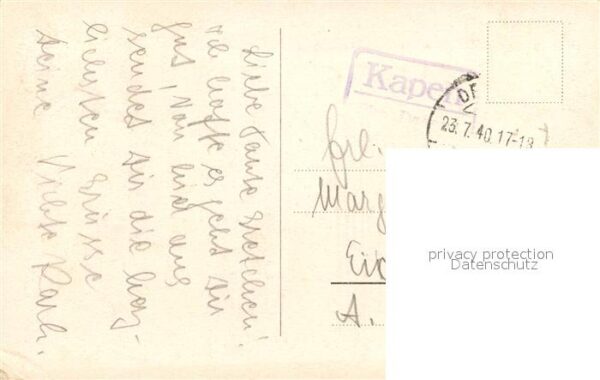 Liebe Tante Gretchen!
ich hoffe es geht dir
gut, von hier aus
sendet dir die herz-
lichsten Grüsse
deine Nichte
Kapen
23.7.40.17-18
Marg
A.
privacy protection
Datenschutz